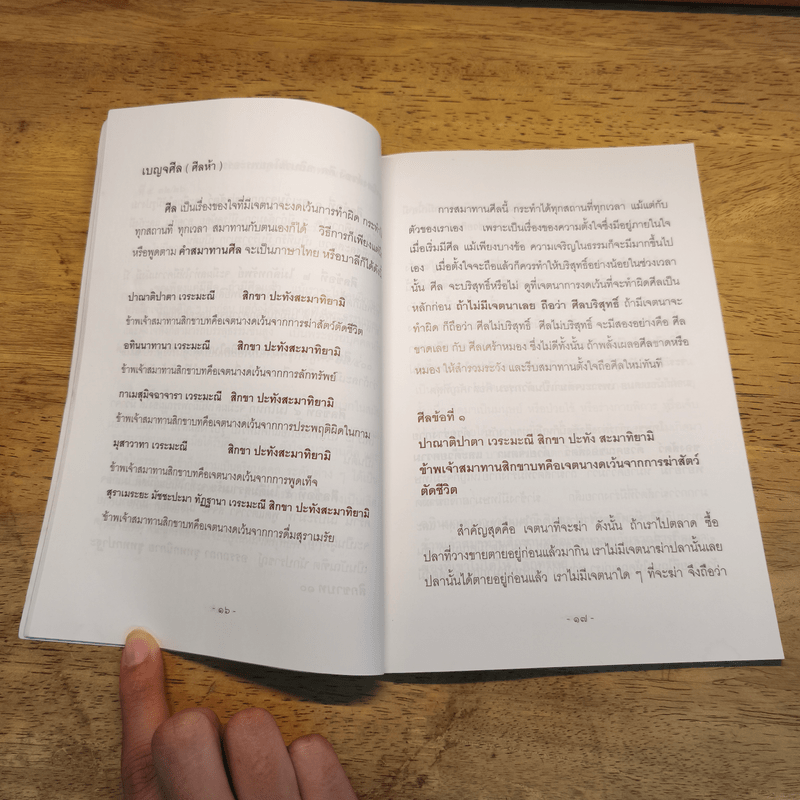 เบญจศีล ( ศีลห้า )
ศีล เป็นเรื่องของใจที่มีเจตนาจะงดเว้นการทำผิด กระทำ
ทุกสถานที่ ทุกเวลา สมาทานกับตนเองก็ได้ วิธีการก็เพียงแต่
หรือพูดตาม คำสมาทานศีล จะเป็นภาษาไทย หรือบาลีก็ได้
ปาณาติปาตา เวระมะณี สิกขา ปะทังสะมาทิยามิ
ข้าพเจ้าสมาทานสิกขาบทคือเจตนางดเว้นจากการฆ่าสัตว์ตัดชีวิต
อทินนาทานา เวระมะณี สิกขา ปะทังสะมาทิยามิ
ข้าพเจ้าสมาทานสิกขาบทคือเจตนางดเว้นจากการลักทรัพย์
กาเมสุมิจฉาจารา เวระมะณี สิกขา ปะทังสะมาทิยามิ
ข้าพเจ้าสมาทานสิกขาบทคือเจตนางดเว้นจากการประพฤติผิดในกาม
มุสาวาทา เวระมะณี สิกขา ปะทังสะมาทิยามิ
ข้าพเจ้าสมาทานสิกขาบทคือเจตนางดเว้นจากการพูดเท็จ
สุราเมระยะ มัชชะปะมา ทัฏฐานา เวระมะณี สิกขา ปะทังสะมาทิยามิ
ข้าพเจ้าสมาทานสิกขาบทคือเจตนางดเว้นจากการดื่มสุราเมรัย
- ๑๖ -
การสมาทานศีลนี้ กระทำได้ทุกสถานที่ทุกเวลา แม้แต่กับ
ตัวของเราเอง เพราะเป็นเรื่องของความตั้งใจซึ่งมีอยู่ภายในใจ
เมื่อเริ่มมีศีล แม้เพียงบางข้อ ความเจริญในธรรมก็จะมีมากขึ้นไป
เอง เมื่อตั้งใจจะถือแล้วก็ควรทำให้บริสุทธิ์อย่างน้อยในช่วงเวลา
นั้น ศีล จะบริสุทธิ์หรือไม่ ดูที่เจตนาการงดเว้นที่จะทำผิดศีลเป็น
หลักก่อน ถ้าไม่มีเจตนาเลย ถือว่า ศีลบริสุทธิ์ ถ้ามีเจตนาจะ
ทำผิด ก็ถือว่า ศีลไม่บริสุทธิ์ ศีลไม่บริสุทธิ์ จะมีสองอย่างคือ ศีล
ขาดเลย กับ ศีลเศร้าหมอง ซึ่งไม่ดีทั้งนั้น ถ้าพลั้งเผลอศีลขาดหรือ
หมอง ให้สำรวมระวัง และรีบสมาทานตั้งใจถือศีลใหม่ทันที
ศีลข้อที่ ๑
ปาณาติปาตา เวระมะณี สิกขา ปะทัง สะมาทิยามิ
ข้าพเจ้าสมาทานสิกขาบทคือเจตนางดเว้นจากการฆ่าสัตว์
ตัดชีวิต
สำคัญสุดคือ เจตนาที่จะฆ่า ดังนั้น ถ้าเราไปตลาด ซื้อ
ปลาที่วางขายตายอยู่ก่อนแล้วมากิน เราไม่มีเจตนาฆ่าปลานั้นเลย
ปลานั้นได้ตายอยู่ก่อนแล้ว เราไม่มีเจตนาใด ๆ ที่จะฆ่า จึงถือว่า
- ๑๗ -